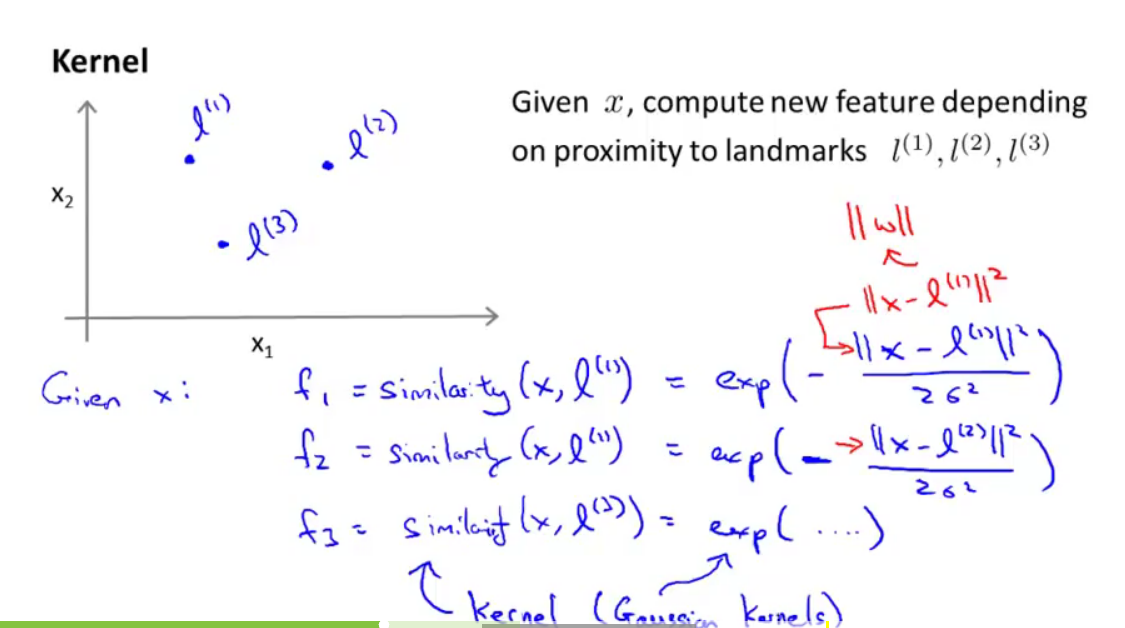 Kernel
Given x, compute new feature depending
on proximity to landmarks l^(1), l^(2), l^(3)
l^(1)
l^(2)
l^(3)
x₂
x₁
||w||
||x - l^(1)||²
Given x: f₁ = similarity (x, l^(1)) = exp(- ||x - l^(1)||² / 2σ²)
f₂ = similarity (x, l^(1)) = exp(- ||x - l^(2)||² / 2σ²)
f₃ = similarity (x, l^(3)) = exp( .... )
kernel (Gaussian kernels)